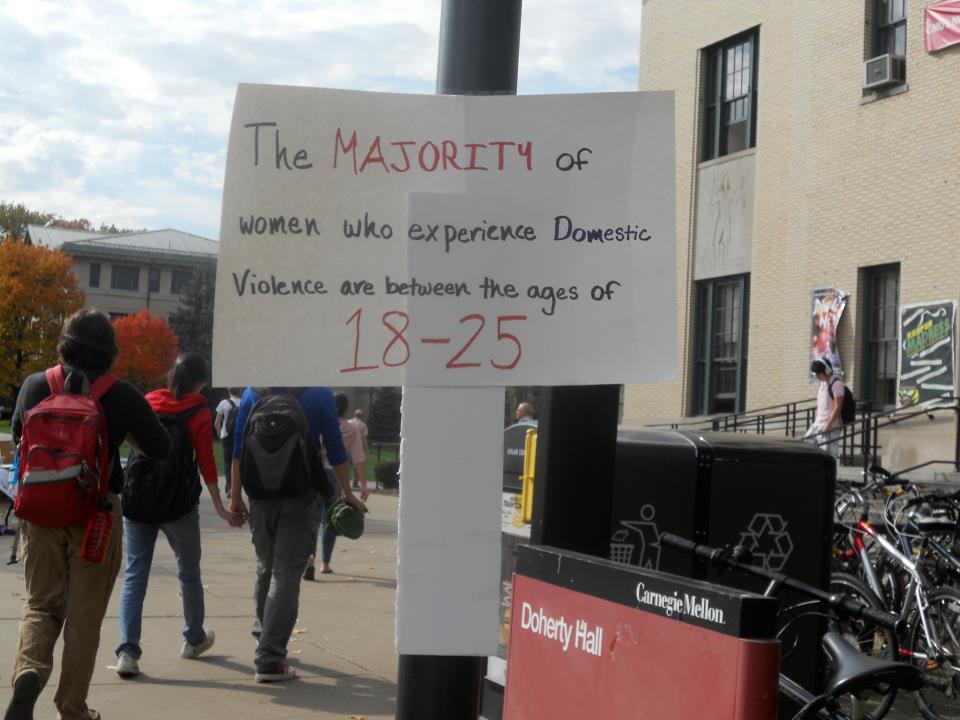 The MAJORITY of
women who experience Domestic
Violence are between the ages of
18-25
Carnegie Mellon
Doherty Hall
REEFER
MADNESS